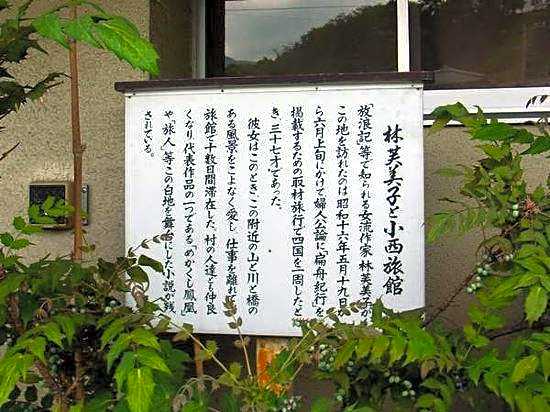 林芙美子と小西旅館
「放浪記」等で知られる女流作家 林芙美子が
この地を訪れたのは昭和十六年五月十九日
ら六月上旬にかけて婦人公論に「扁舟紀行」を
掲載するための取材旅行で四国を一周したと
き、三十七才であった。
彼女はこのとき、この附近の山と川と橋の
ある風景をこよなく愛し、仕事を離れて
旅館で十数日間滞在した。村の人達とも仲良
くなり、代表作品の一つである「めかくし鳳凰
や「旅人」等この白地を舞台にした小説が残
されている。